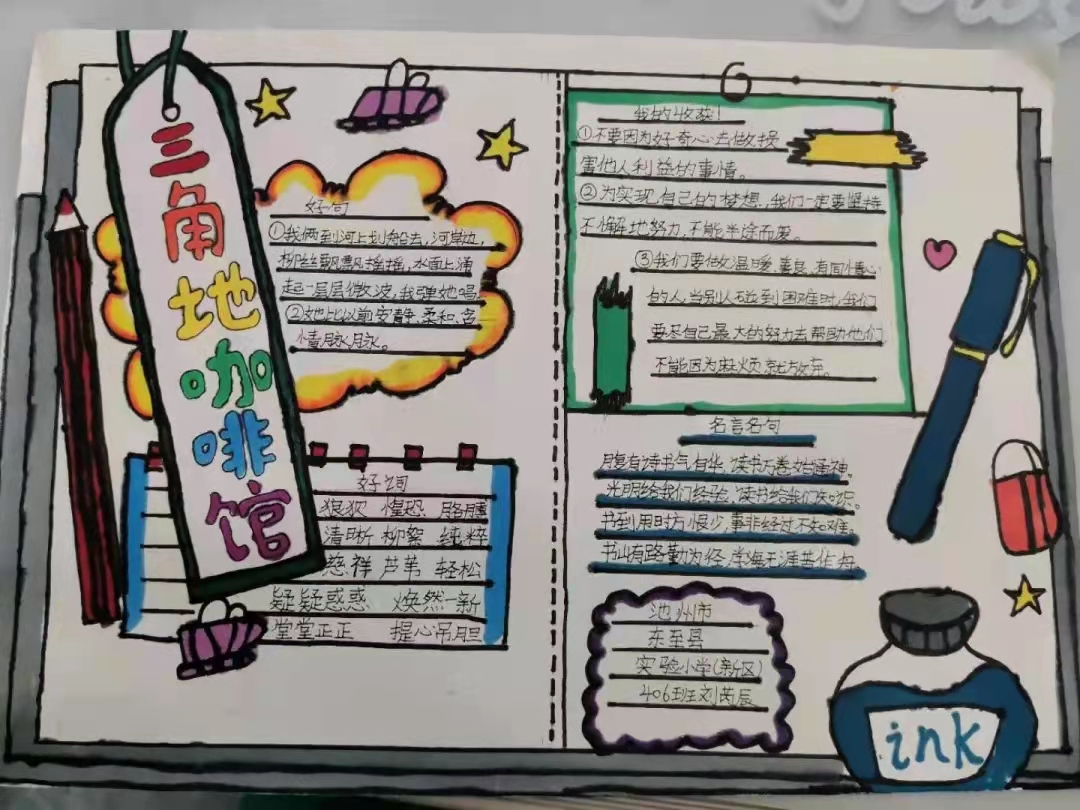 三角地咖啡馆
好句
①我俩到河上划船去,河岸边,
柳丝飘飘摇摇,水面上涌
起一层层微波,我弹她唱
②她比以前安静、柔和、含
情脉脉。
好词
狼狈 惶恐 胳膊
清晰 柳絮 纯粹
慈祥 芦苇 轻松
疑疑惑惑 焕然一新
堂堂正正 提心吊胆
我的收获!
①不要因为好奇心去做损
害他人利益的事情。
②为实现自己的梦想,我们一定要坚持
不懈地努力,不能半途而废。
③我们要做温暖、善良、有同情心
的人,当别人碰到困难时,我们
要尽自己最大的努力去帮助他们,
不能因为麻烦就放弃。
名言名句
腹有诗书气自华,读书万卷始通神。
光明给我们经验,读书给我们知识。
书到用时方恨少,事非经过不知难。
书山有路勤为径,学海无涯苦作舟。
池州市
东至县
实验小学(新区)
406班刘芮辰
ink